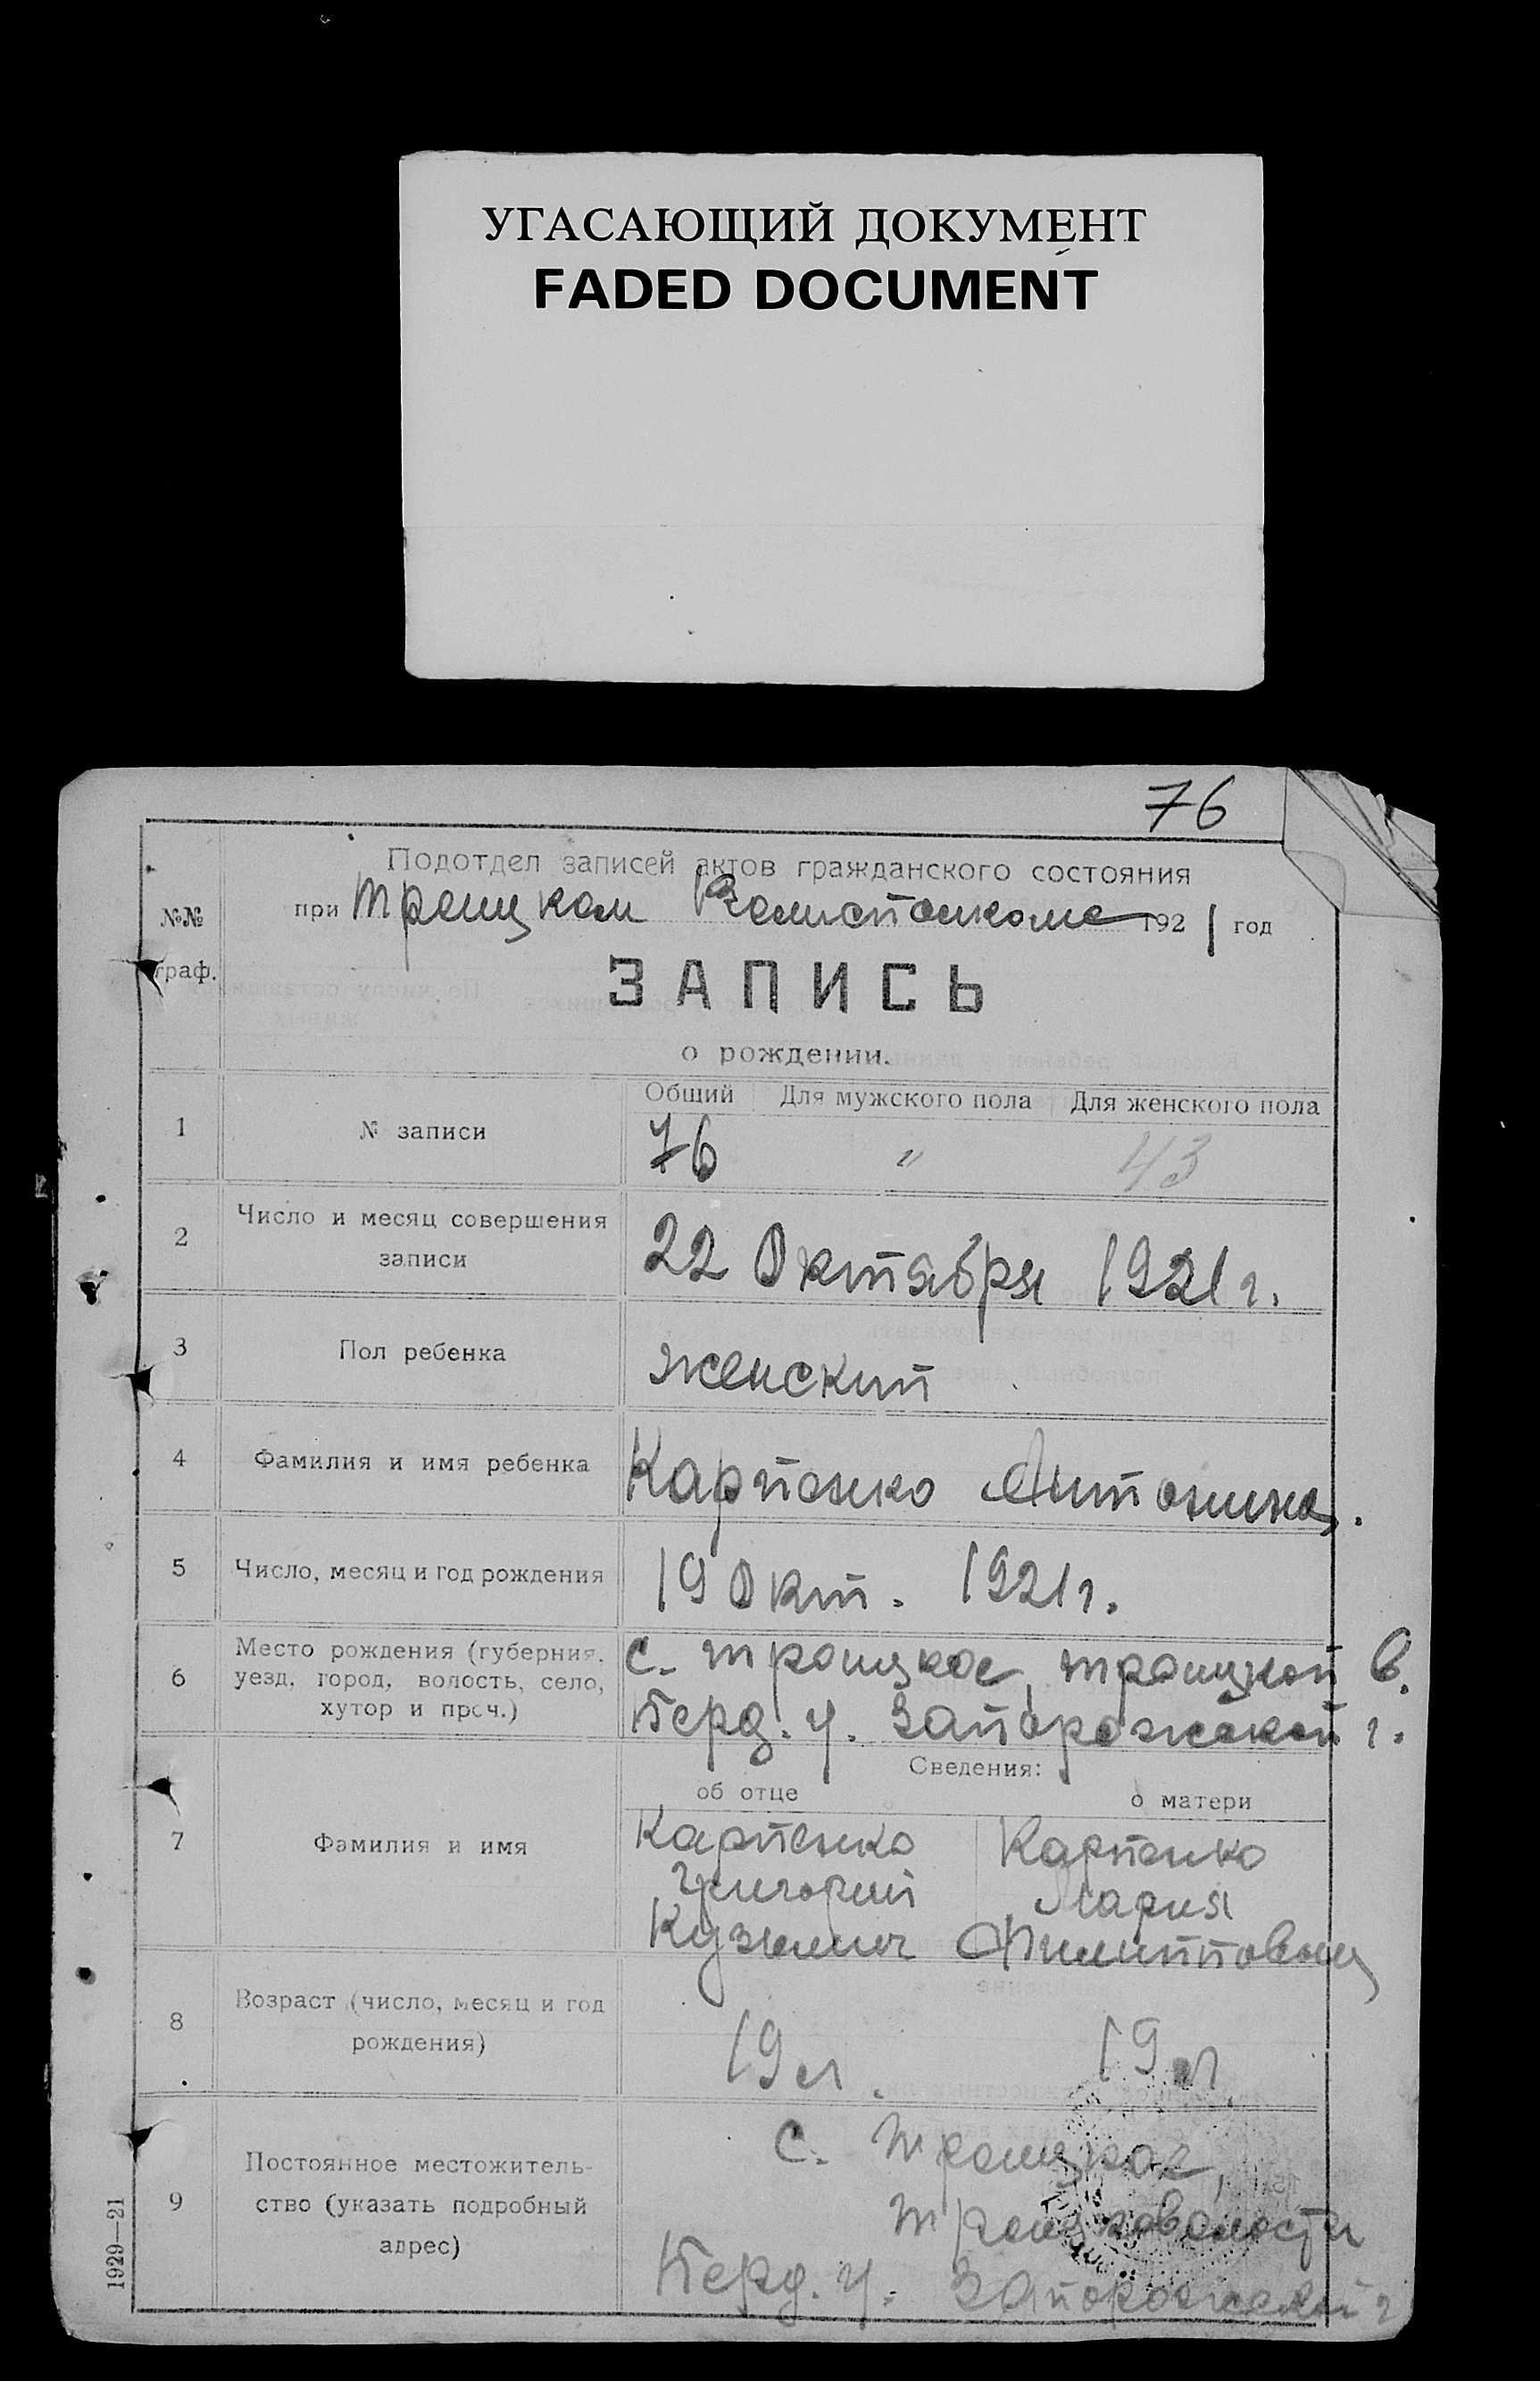 УГАСАЮЩИЙ ДОКУМЕНТ
FADED DOCUMENT
76
Подотдел записей актов гражданского состояния
№№ граф.
при Троицком 1921 год
ЗАПИСЬ
о рождении.
Общий Для мужского пола Для женского пола
1 № записи 76 " 43
2 Число и месяц совершения
записи
22 Октября 1921 г.
3 Пол ребенка женский
4 Фамилия и имя ребенка Карпенко Антонина.
5 Число, месяц и год рождения 19 Окт. 1921 г.
6 Место рождения (губерния,
уезд, город, волость, село,
хутор и проч.)
с. Троицкое, Троицкой в.
Берд. у. Запорожской г.
Сведения:
об отце о матери
7 Фамилия и имя
Карпенко
Григорий
Кузьмич
Карпенко
Мария
8 Возраст (число, месяц и год
рождения)
19 л. 19 л.
9 Постоянное местожитель-
ство (указать подробный
адрес)
с. Троицкое,
Берд. у. Запорожской г
1929—21